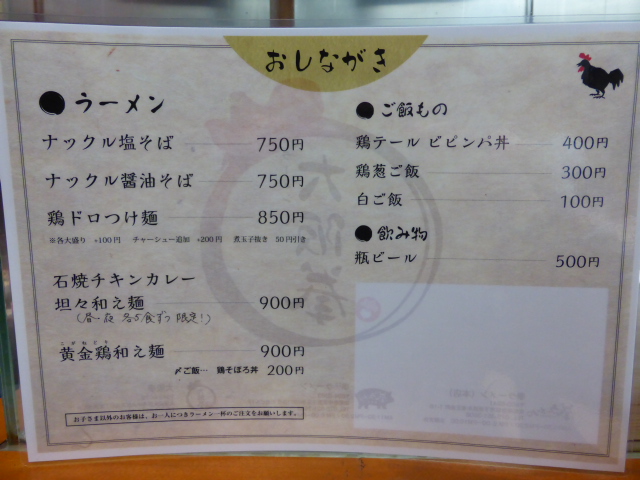 おしながき
●ラーメン
ナックル塩そば 750円
ナックル醤油そば 750円
鶏ドロつけ麺 850円
※各大盛り +100円 チャーシュー追加 +200円 煮玉子抜き 50円引き
石焼チキンカレー
坦々和え麺 900円
(昼・夜 各5食ずつ 限定!)
こがねどり
黄金鶏和え麺 900円
〆ご飯… 鶏そぼろ丼 200円
お子さま以外のお客様は、お一人につきラーメン一杯のご注文をお願いします。
●ご飯もの
鶏テール ビビンパ丼 400円
鶏葱ご飯 300円
白ご飯 100円
●飲み物
瓶ビール 500円
大阪拳